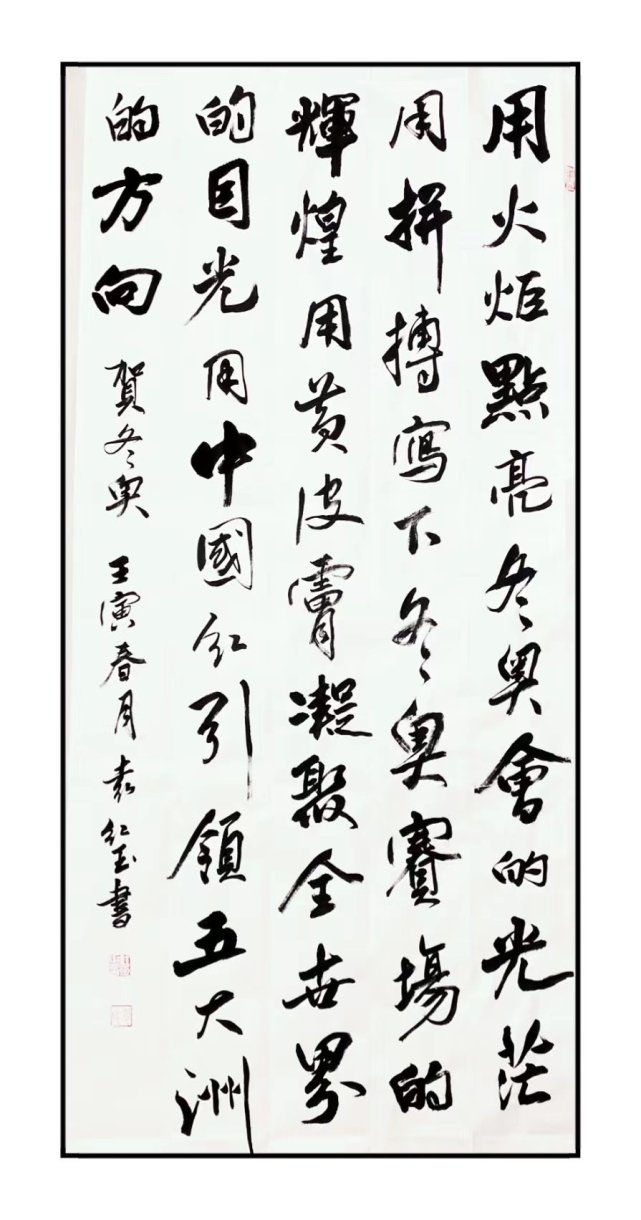 用火炬點亮冬奥會的光茫
用拼搏寫下冬奥賽場的
輝煌用黄皮膚凝聚全世界
的目光用中國红引領五大洲
的方向 賀冬奥 壬寅春月 袁红玉書